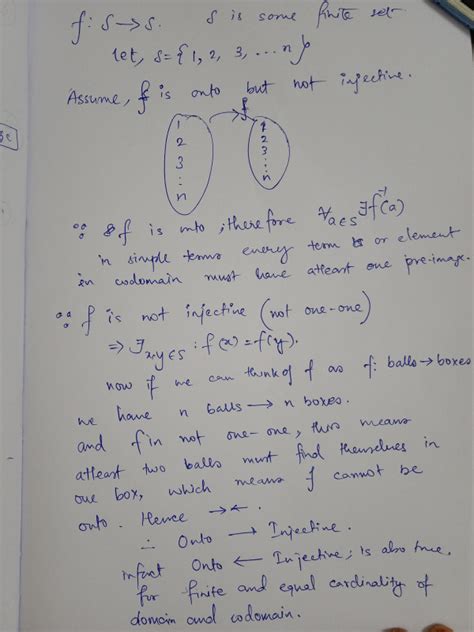 f: S → S. S is some finite set
let, S = {1, 2, 3, ... n}
Assume, f is onto but not injective.
f
1 1
2 2
3 3
⋮ ⋮
n n
∵ f is onto, therefore ∀a∈S ∃f⁻¹(a)
in simple terms every term or element
in codomain must have atleast one pre-image.
∵ f is not injective (not one-one)
⇒ ∃x,y∈S : f(x) = f(y).
now if we can think of f as f: balls → boxes
we have n balls → n boxes.
and f in not one-one, this means
atleast two balls must find themselves in
one box, which means f cannot be
onto. Hence →←.
∴ Onto → Injective.
infact Onto ← Injective, is also true,
for finite and equal cardinality of
domain and codomain.